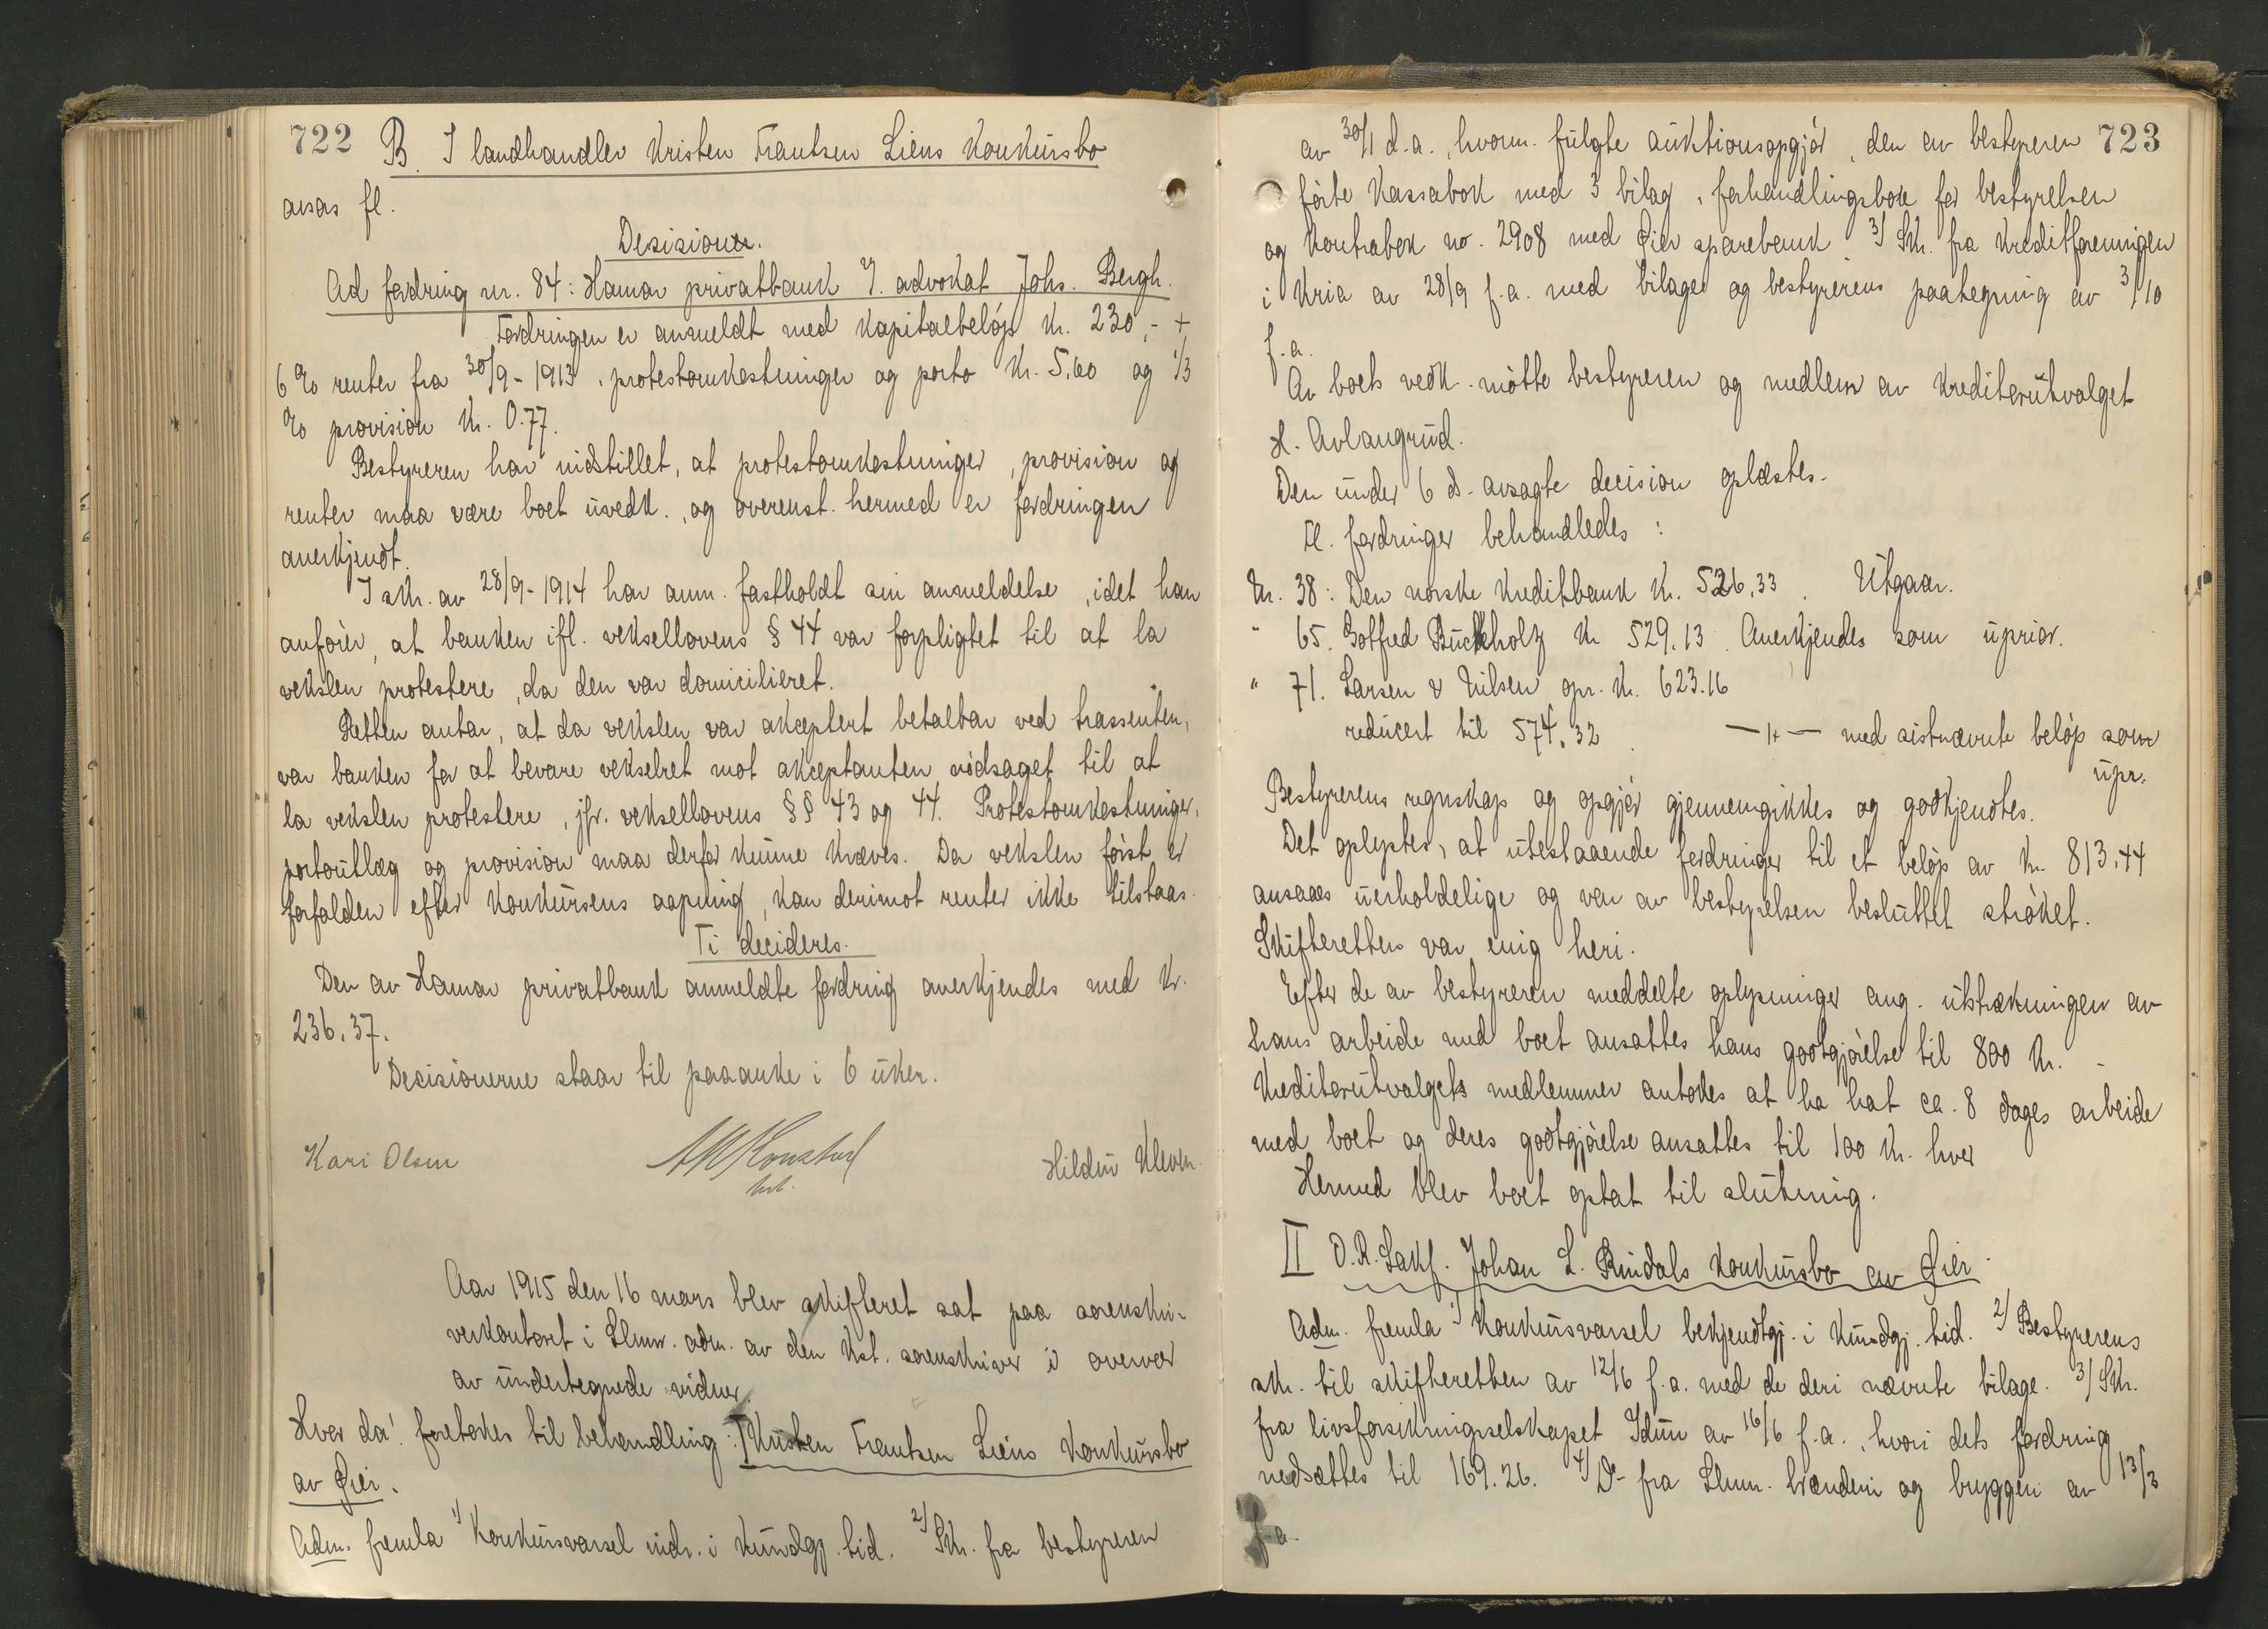 722
B. I landhandler Kristen Frantsen Liens Konkursbo
avsas fl.
Desisioner.
Ad fordring nr. 84: Hamar privatbank v. advokat Johs. Bergh.
Fordringen er anmeldt med Kapitalbeløp Kr. 230,- +
6 % renter fra 30/9-1913, protestomkostninger og porto Kr. 5,60 og 1/3
% provision Kr. 0.77.
Bestyreren har indstillet, at protestomkostninger, provision og
renter maa være boet uvedk., og overenst. hermed er fordringen
anerkjendt.
I skr. av 28/9-1914 har anm. fastholdt sin anmeldelse, idet han
anfører, at banken ifl. veksellovens § 44 var forpligtet til at la
vekslen protestere, da den var domicilieret.
Retten antar, at da vekslen var akceptert betalbar ved trassenten,
var banken for at bevare vekselret mot akceptanten nødsaget til at
la vekslen protestere, jfr. veksellovens §§ 43 og 44. Protestomkostninger,
portoutlæg og provision maa derfor kunne kræves. Da vekslen først er
forfalden efter Konkursens aapning, kan derimot renter ikke tilstaas.
Ti decideres.
Den av Hamar privatbank anmeldte fordring anerkjendes med Kr.
236.37.
Desisionerne staar til paaanke i 6 uker.
Kari Olsen
Hildur Kleven.
Aar 1915 den 16 mars blev skifteret sat paa sorenskri-
verkontoret i Llmr. adm. av den kst. sorenskriver i overvær
av undertegnede vidner.
Hvor da! foretokes til behandling: I Kristen Frantsen Liens Konkursbo
av Øier.
Adm. fremla 1) Konkursvarsel indr. i Kundgj. tid. 2) Skr. fra bestyreren
723
av 30/1 d.a., hvorm. fulgte auktionsopgjør, den av bestyreren
førte Kassabok med 3 bilag, forhandlingsbok for bestyrelsen
og Kontrabok no. 2908 med Øier sparebank 3) Skr. fra Kreditforeningen
i Kria av 28/9 f.a. med bilager og bestyrerens paategning av 3/10
f.a.
Av boets vedk. møtte bestyreren og medlem av Kreditorutvalget
H. Avlangrud.
Den under 6 ds. avsagte decision oplæstes.
Fl. fordringer behandledes:
Nr. 38: Den norske Kreditbank Kr. 526,33. Utgaar.
" 65. Gotfred Buckholz Kr 529.13. Anerkjendes som uprior.
" 71. Larsen & Nilsen opr. Kr. 623.16
reducert til 574.32. —"— med sistnævnte beløp som
upr.
Bestyrerens regnskap og opgjør gjennemgikkes og godkjendtes.
Det oplystes, at utestaaende fordringer til et beløp av Kr. 813.44
ansaaes uerholdelige og var av bestyrelsen besluttet strøket.
Skifteretten var enig heri.
Efter de av bestyreren meddelte oplysninger ang. utstrækningen av
hans arbeide med boet ansattes hans godtgjørelse til 800 Kr. -
Kreditorutvalgets medlemmer antokes at ha hat ca. 8 dages arbeide
med boet og deres godtgjørelse ansattes til 100 Kr. hver
Hermed blev boet optat til slutning.
II O.R.Sakf. Johan L. Rindals Konkursbo av Øier.
Adm. fremla 1) Konkursvarsel bekjendtgj. i Kundgj. tid. 2) Bestyrerens
skr. til skifteretten av 12/6 f.a. med de deri nævnte bilage. 3) Skr.
fra livsforsikringsselskapet Idun av 16/6 f.a., hvori dets fordring
nedsættes til 169.26. 4) Do fra Llmr. brænderi og bryggeri av 13/3
f.a.